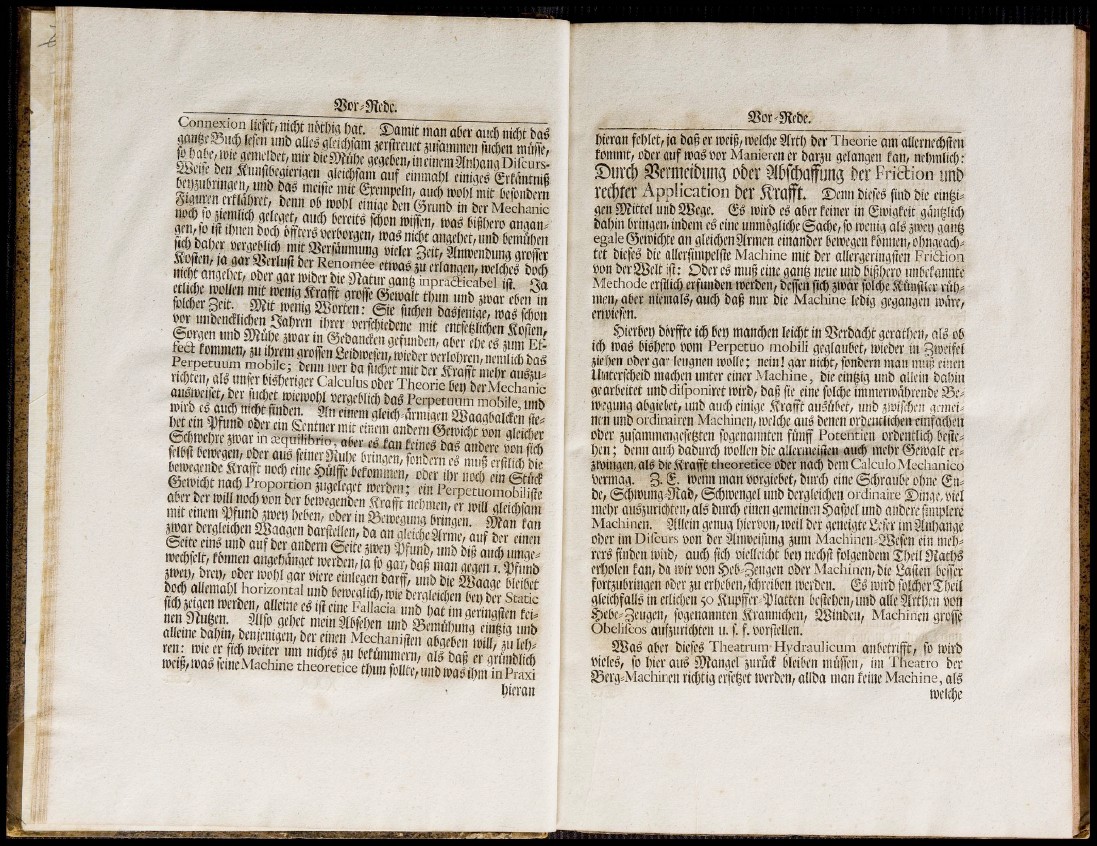 Vor-Rede.
Connexion lieset, nicht nöthig hat. Damit man aber auch nicht das
gantze Buch lesen und alles gleichsam zerstreuet zusammen suchen müsse,
so habe, wie gemeldet, mir die Mühe gegeben, in einem Anhang Discurs-
Weise den Kunstbegierigen gleichsam auf einmahl einiges Erkäntniß
beyzubringen, und das meiste mit Exempeln, auch wohl mit besondern
Figuren erklähret, denn ob wohl einige den Grund in der Mechanic
noch so ziemlich geleget, auch bereits schon wissen, was bißhero angan-
gen, so ist ihnen doch öffters verborgen, was nicht angehet, und bemühen
sich daher vergeblich mit Versäumung vieler Zeit, Anwendung grosser
Kosten, ja gar Verlust der Renomée etwas zu erlangen, welches doch
nicht angehet, oder gar wider die Natur gantz inpracticabel ist. Ja
etliche wollen mit wenig Krafft grosse Gewalt thun und zwar eben in
solcher Zeit. Mit wenig Worten: Sie suchen dasjenige, was schon
vor undencklichen Jahren ihrer verschiedene mit entsetzlichen Kosten,
Sorgen und Mühe zwar in Gedancken gefunden, aber ehe es zum Ef-
fect kommen, zu ihrem grossen Leidwesen, wieder verlohren, nemlich das
Perpetuum mobile; denn wer da suchet mit der Krafft mehr auszu-
richten, als unser bisheriger Calculus oder Theorie bey der Mechanic
ausweiset, der suchet wiewohl vergeblich das Perpetuum mobile, und
wird es auch nicht finden. An einem gleich-ärmigen Waagbalcken ste-
het ein Pfund oder ein Centner mit einem andern Gewicht von gleicher
Schwehre zwar in æquilibrio, aber es kan keines das andere von sich
selbst bewegen, oder aus seiner Ruhe bringen, sondern es muß erstlich die
bewegende Krafft noch eine Hülffe bekommen, oder ihr noch ein Stück
Gewicht nach Proportion zugeleget werden; ein Perpetuomobiliste
aber der will noch von der bewegenden Krafft nehmen, er will gleichsam
mit einem Pfund zwey heben, oder in Bewegung bringen. Man kan
zwar dergleichen Waagen darstellen, da an gleiche Arme, auf der einen
Seite eins und auf der andern Seite zwey Pfund, und diß auch umge-
wechselt, können angehänget werden, ja so gar, daß man gegen 1. Pfund
zwey, drey, oder wohl gar viere einlegen darff, und die Waage bleibet
doch allemahl horizontal und beweglich, wie dergleichen bey der Static
sich zeigen werden, alleine es ist eine Fallacia und hat im geringsten kei-
nen Nutzen. Also gehet mein Absehen und Bemühung eintzig und
alleine dahin, denjenigen, der einen Mechanisten abgeben will, zu leh-
ren: wie er sich weiter um nichts zu bekümmern, als daß er gründlich
weiß, was seine Machine theoretice thun sollte, und was ihm in Praxi
hieran
Vor-Rede.
hieran fehlet, ja daß er weiß, welche Arth der Theorie am allernechsten
kommt, oder auf was vor Manieren er darzu gelangen kan, nehmlich:
Durch Vermeidung oder Abschaffung der Friction und
rechter Application der Krafft. Denn dieses sind die eintzi-
gen Mittel und Wege. Es wird es aber keiner in Ewigkeit gäntzlich
dahin bringen, indem es eine unmögliche Sache, so wenig als zwey gantz
egale Gewichte an gleichen Armen einander bewegen können, ohngeach-
tet dieses die allersimpelste Machine mit der allergeringsten Friction
von der Welt ist: Oder es muß eine gantz neue und bißhero unbekannte
Methode erstlich erfunden werden, dessen sich zwar solche Künstler rüh-
men, aber niemals, auch daß nur die Machine ledig gegangen wäre,
erwiesen.
Hierbey dörffte ich bey manchen leicht in Verdacht gerathen, als ob
ich was bishero vom Perpetuo mobili geglaubet, wieder in Zweifel
ziehen oder gar leugnen wolle; nein! gar nicht, sondern man muß einen
Unterscheid machen unter einer Machine, die eintzig und allein dahin
gearbeitet und disponiret wird, daß sie eine solche immerwährende Be-
wegung abgiebet, und auch einige Krafft ausübet, und zwischen gemei-
nen und ordinairen Machinen, welche aus denen ordentlichen einfachen
oder zusammengesetzten sogenannten fünff Potentien ordentlich beste-
hen; denn auch dadurch wollen die allermeisten auch mehr Gewalt er-
zwingen, als die Krafft theoretice oder nach dem Calculo Mechanico
vermag. Z. E. wenn man vorgiebet, durch eine Schraube ohne En-
de, Schwung-Rad, Schwengel und dergleichen ordinaire Dinge, viel
mehr auszurichten, als durch einen gemeinen Haspel und andere simplere
Machinen. Allein genug hiervon, weil der geneigte Leser im Anhange
oder im Discurs von der Anweisung zum Machinen-Wesen ein meh-
rers finden wird, auch sich vielleicht bey nechst folgendem Theil Raths
erholen kan, da wir von Heb-Zeugen oder Machinen, die Lasten besser
fortzubringen oder zu erheben, schreiben werden. Es wird solcher Theil
gleichfalls in etlichen 50 Kupffer-Platten bestehen, und alle Arthen von
Hebe-Zeugen, sogenannten Krannichen, Winden, Machinen grosse
Obeliscos aufzurichten u. s. f. vorstellen.
Was aber dieses Theatrum Hydraulicum anbetrifft, so wird
vieles, so hier aus Mangel zurück bleiben müssen, im Theatro der
Berg-Machinen richtig ersetzet werden, allda man keine Machine, als
welche